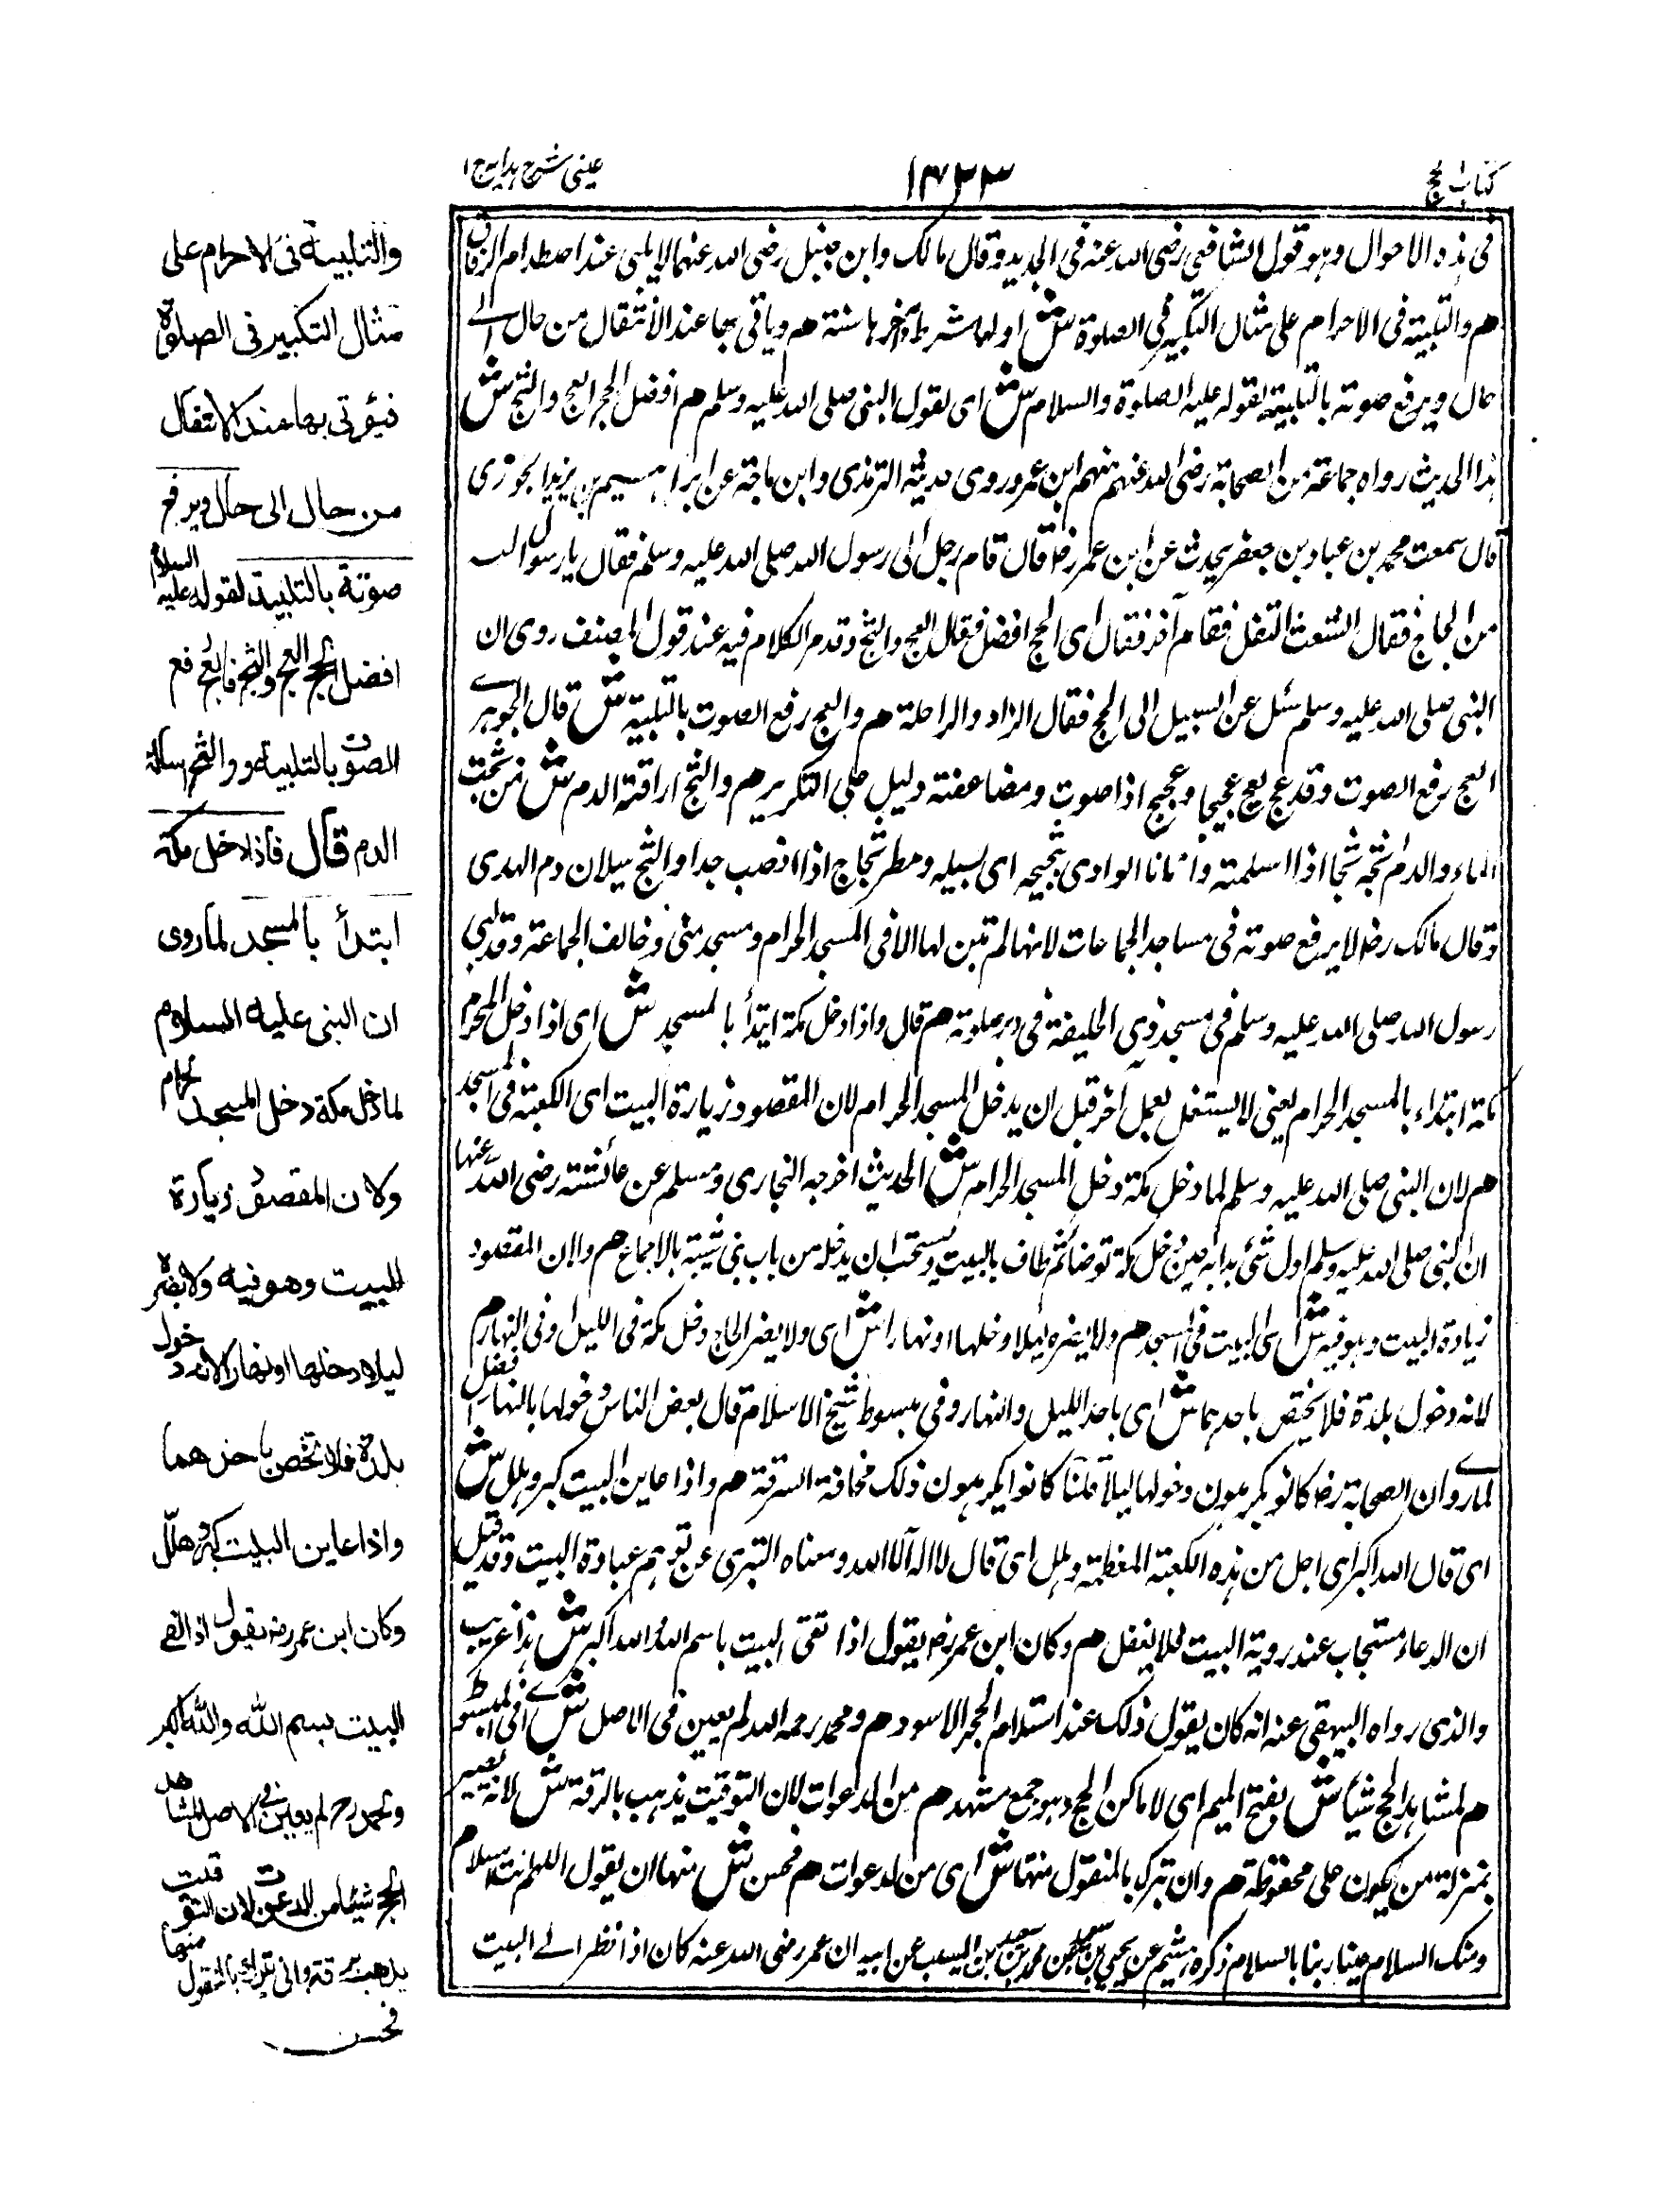 كتاب الحج
١٤٢٣
عينى شرح هدايه ج ١
فى هذه الاحوال وهو قول الشافعى رضى الله عنه فى الجديد وقال مالك وابن حنبل رضى الله عنهما لا يلبى عند اصطدام الرفاق
هم والتلبية فى الاحرام على مثال التكبير فى الصلوة ش اولها شرط وآخرها سنة هم وياتى بها عند الانتقال من حال الے
حال ويرفع صوته بالتلبية لقوله عليه الصلوة والسلام ش اى لقول النبى صلى الله عليه وسلم هم افضل الحج العج والثج ش
هذا الحديث رواه جماعة من الصحابة رضى الله عنهم منهم ابن عمر وروى حديثه الترمذى وابن ماجة عن ابراهيم بن يزيد الجوزى
قال سمعت محمد بن عباد بن جعفر يحدث عن ابن عمر رض قال قام رجل الى رسول الله صلى الله عليه وسلم فقال يا رسول الله
من الحاج فقال الشعث التفل فقام آخر فقال اى الحج افضل فقال العج والثج وقدم الكلام فيه عند قول المصنف روى ان
النبى صلى الله عليه وسلم سئل عن السبيل الى الحج فقال الزاد والراحلة هم والعج رفع الصوت بالتلبية ش قال الجوهرے
العج رفع الصوت وقد عج يعج عجيجا وعجيج اذا صوت ومضاعفته دليل على التكرير هم والثج اراقة الدم ش من ثججت
الماء والدم ثجه ثجا اذا اسلمته واتانا الوادى بثجيجه اى بسيله ومطر ثجاج اذا انصب جدا والثج سيلان دم الهدى
وقال مالك رض لا يرفع صوته فى مساجد الجماعات لانها لم تبن لها الا فى المسجد الحرام ومسجد منى وخالف الجماعة وقد لبى
رسول الله صلى الله عليه وسلم فى مسجد ذى الحليفة فى دبر صلوته هم قال واذا دخل مكة ابتدأ بالمسجد ش اى اذا دخل المحرم
مكة ابتداء بالمسجد الحرام يعنى لا يشتغل بعمل آخر قبل ان يدخل المسجد الحرام لان المقصود زيارة البيت اى الكعبة فى المسجد
هم لان النبى صلى الله عليه وسلم لما دخل مكة دخل المسجد الحرام ش الحديث اخرجه البخارى ومسلم عن عائشة رضى الله عنها
ان النبى صلى الله عليه وسلم اول شئ بدا به حين دخل مكة توضأ ثم طاف بالبيت ويستحب ان يدخله من باب بنى شيبة بالاجماع هم ولان المقصود
زيادة البيت وهو فيه ش اى البيت فى المسجد هم ولا يضره ليلا دخلها او نهارا ش اى ولا يضر الحاج دخل مكة فى الليل او فى النهار هم
لانه دخول بلدة فلا يختص باحدهما ش اى باحد الليل والنهار وفى مبسوط شيخ الاسلام قال بعض الناس دخولها بالنهار افضل
لما روے ان الصحابة رض كانو يكرهون دخولها ليلا قلنا كانوا يكرهون ذلك مخافة السرقة هم واذا عاين البيت كبر وهلل ش
اى قال الله اكبر اى اجل من هذه الكعبة المعظمة وهلل اى قال لا اله الا الله ومعناه التبرى عن توهم عبادة البيت وقد قيل
ان الدعاء مستجاب عند روية البيت فلا يغفل هم وكان ابن عمر رض يقول اذا لقى البيت باسم الله والله اكبر ش هذا غريب
والذى رواه البيهقى عنه انه كان يقول ذلك عند استلام الحجر الاسود هم ومحمد رحمه الله لم يعين فى الاصل ش اى فى المبسوط
هم لمشاهد الحج شيأ ش بفتح الميم اى لاماكن الحج وهو جمع مشهد هم من الدعوات لان التوقيت يذهب بالرقة ش لانه يصير
بمنزلة من يكون على محفوظة هم وان تبرك بالمنقول منها ش اى من الدعوات هم فحسن ش منها ان يقول اللهم انت السلام
ومنك السلام حينا ربنا بالسلام ذكره هشيم عن يحيى بن سعيد عن محمد بن سعيد بن المسيب عن ابيه ان عمر رضى الله عنه كان اذا نظر الے البيت
والتلبية فى الاحرام على
مثال التكبير فى الصلوة
فيؤتى بها عند الانتقال
من حال الى حال ويرفع
صوته بالتلبية لقوله عليه السلام
افضل الحج العج والثج فالعج رفع
الصوت بالتلبية والثج اسالة
الدم قال فاذا دخل مكة
ابتدأ بالمسجد لما روى
ان النبى عليه السلام
لما دخل مكة دخل المسجد الحرام
ولان المقصود زيارة
البيت وهو فيه ولا يضره
ليلا دخلها او نهارا لانه دخول
بلدة فلا تخص باحدهما
واذا عاين البيت كبر وهلل
وكان ابن عمر رض يقول اذا لقے
البيت بسم الله والله اكبر
ومحمد رح لم يعين فى الاصل لمشاهد
الحج شيئا من الدعوات لان التوقيت
يذهب بالرقة وان تبرك بالمنقول منها
فحسن